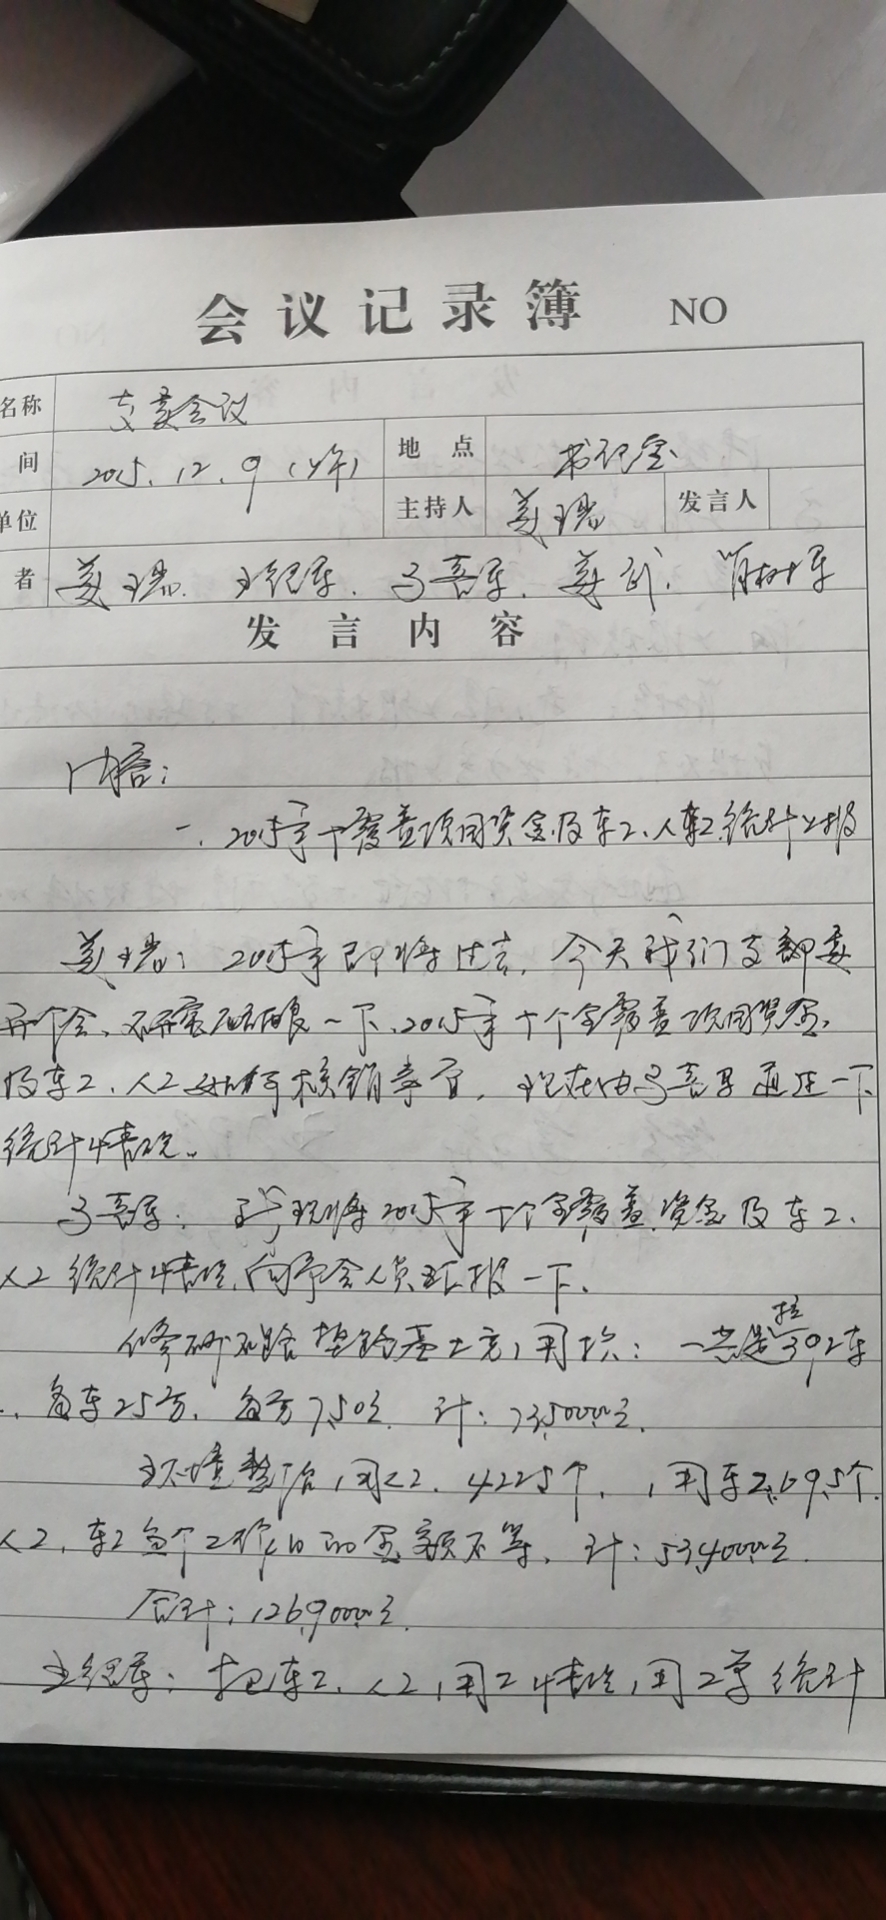 会议记录簿 NO
名称 支委会议
间 2015.12.9(下午) 地点 书记室
单位 主持人 姜瑞 发言人
者 姜瑞、王纪军、马喜军、姜武、肖树军
发言内容
内容:
一、2015年十个覆盖项目资金及车工、人工统计上报
姜瑞:2015年即将过去,今天我们支部委
开个会,研究一下,2015年十个全覆盖项目资金,
及车工、人工如何核销事宜,现在由马喜军通述一下
统计情况。
马喜军:我现将2015年十个全覆盖资金及车工、
人工统计情况,向参会人员汇报一下。
修砂石路垫路基土方,用坎:一共是拉392车
,每车25方,每方7.50元 计:73,500.00元.
环境整治,用人工.4225个,用车工695个.
人工,车工每个工作日的金额不等,计:534000元.
合计:1269000元.
王纪军:把车工、人工,用工情况,用工单统计